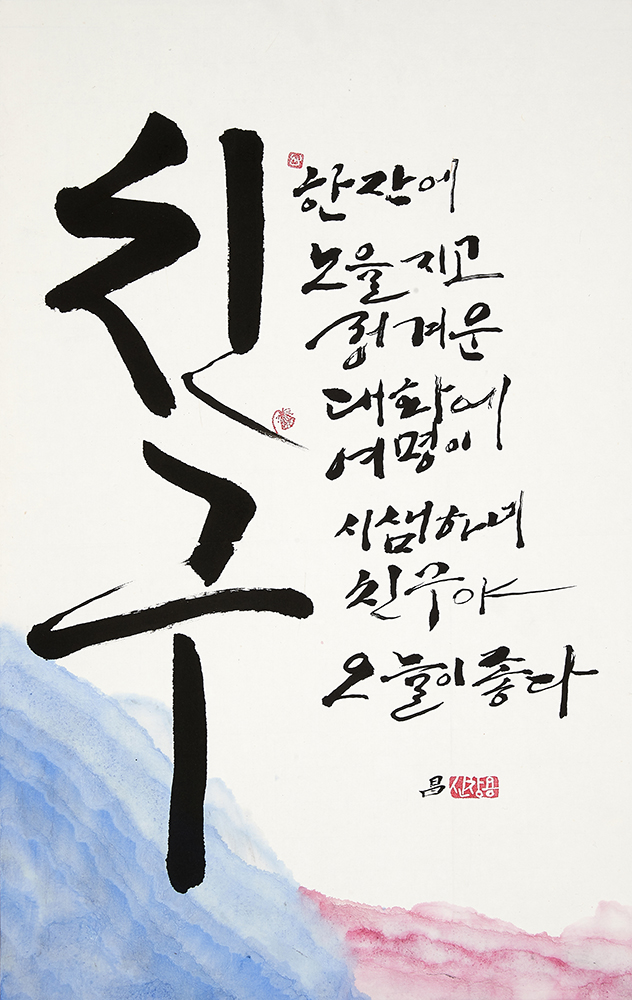 친구
한잔에
노을 지고
정겨운
대화에
여명이
시샘하네
친구야
오늘이 좋다
昌